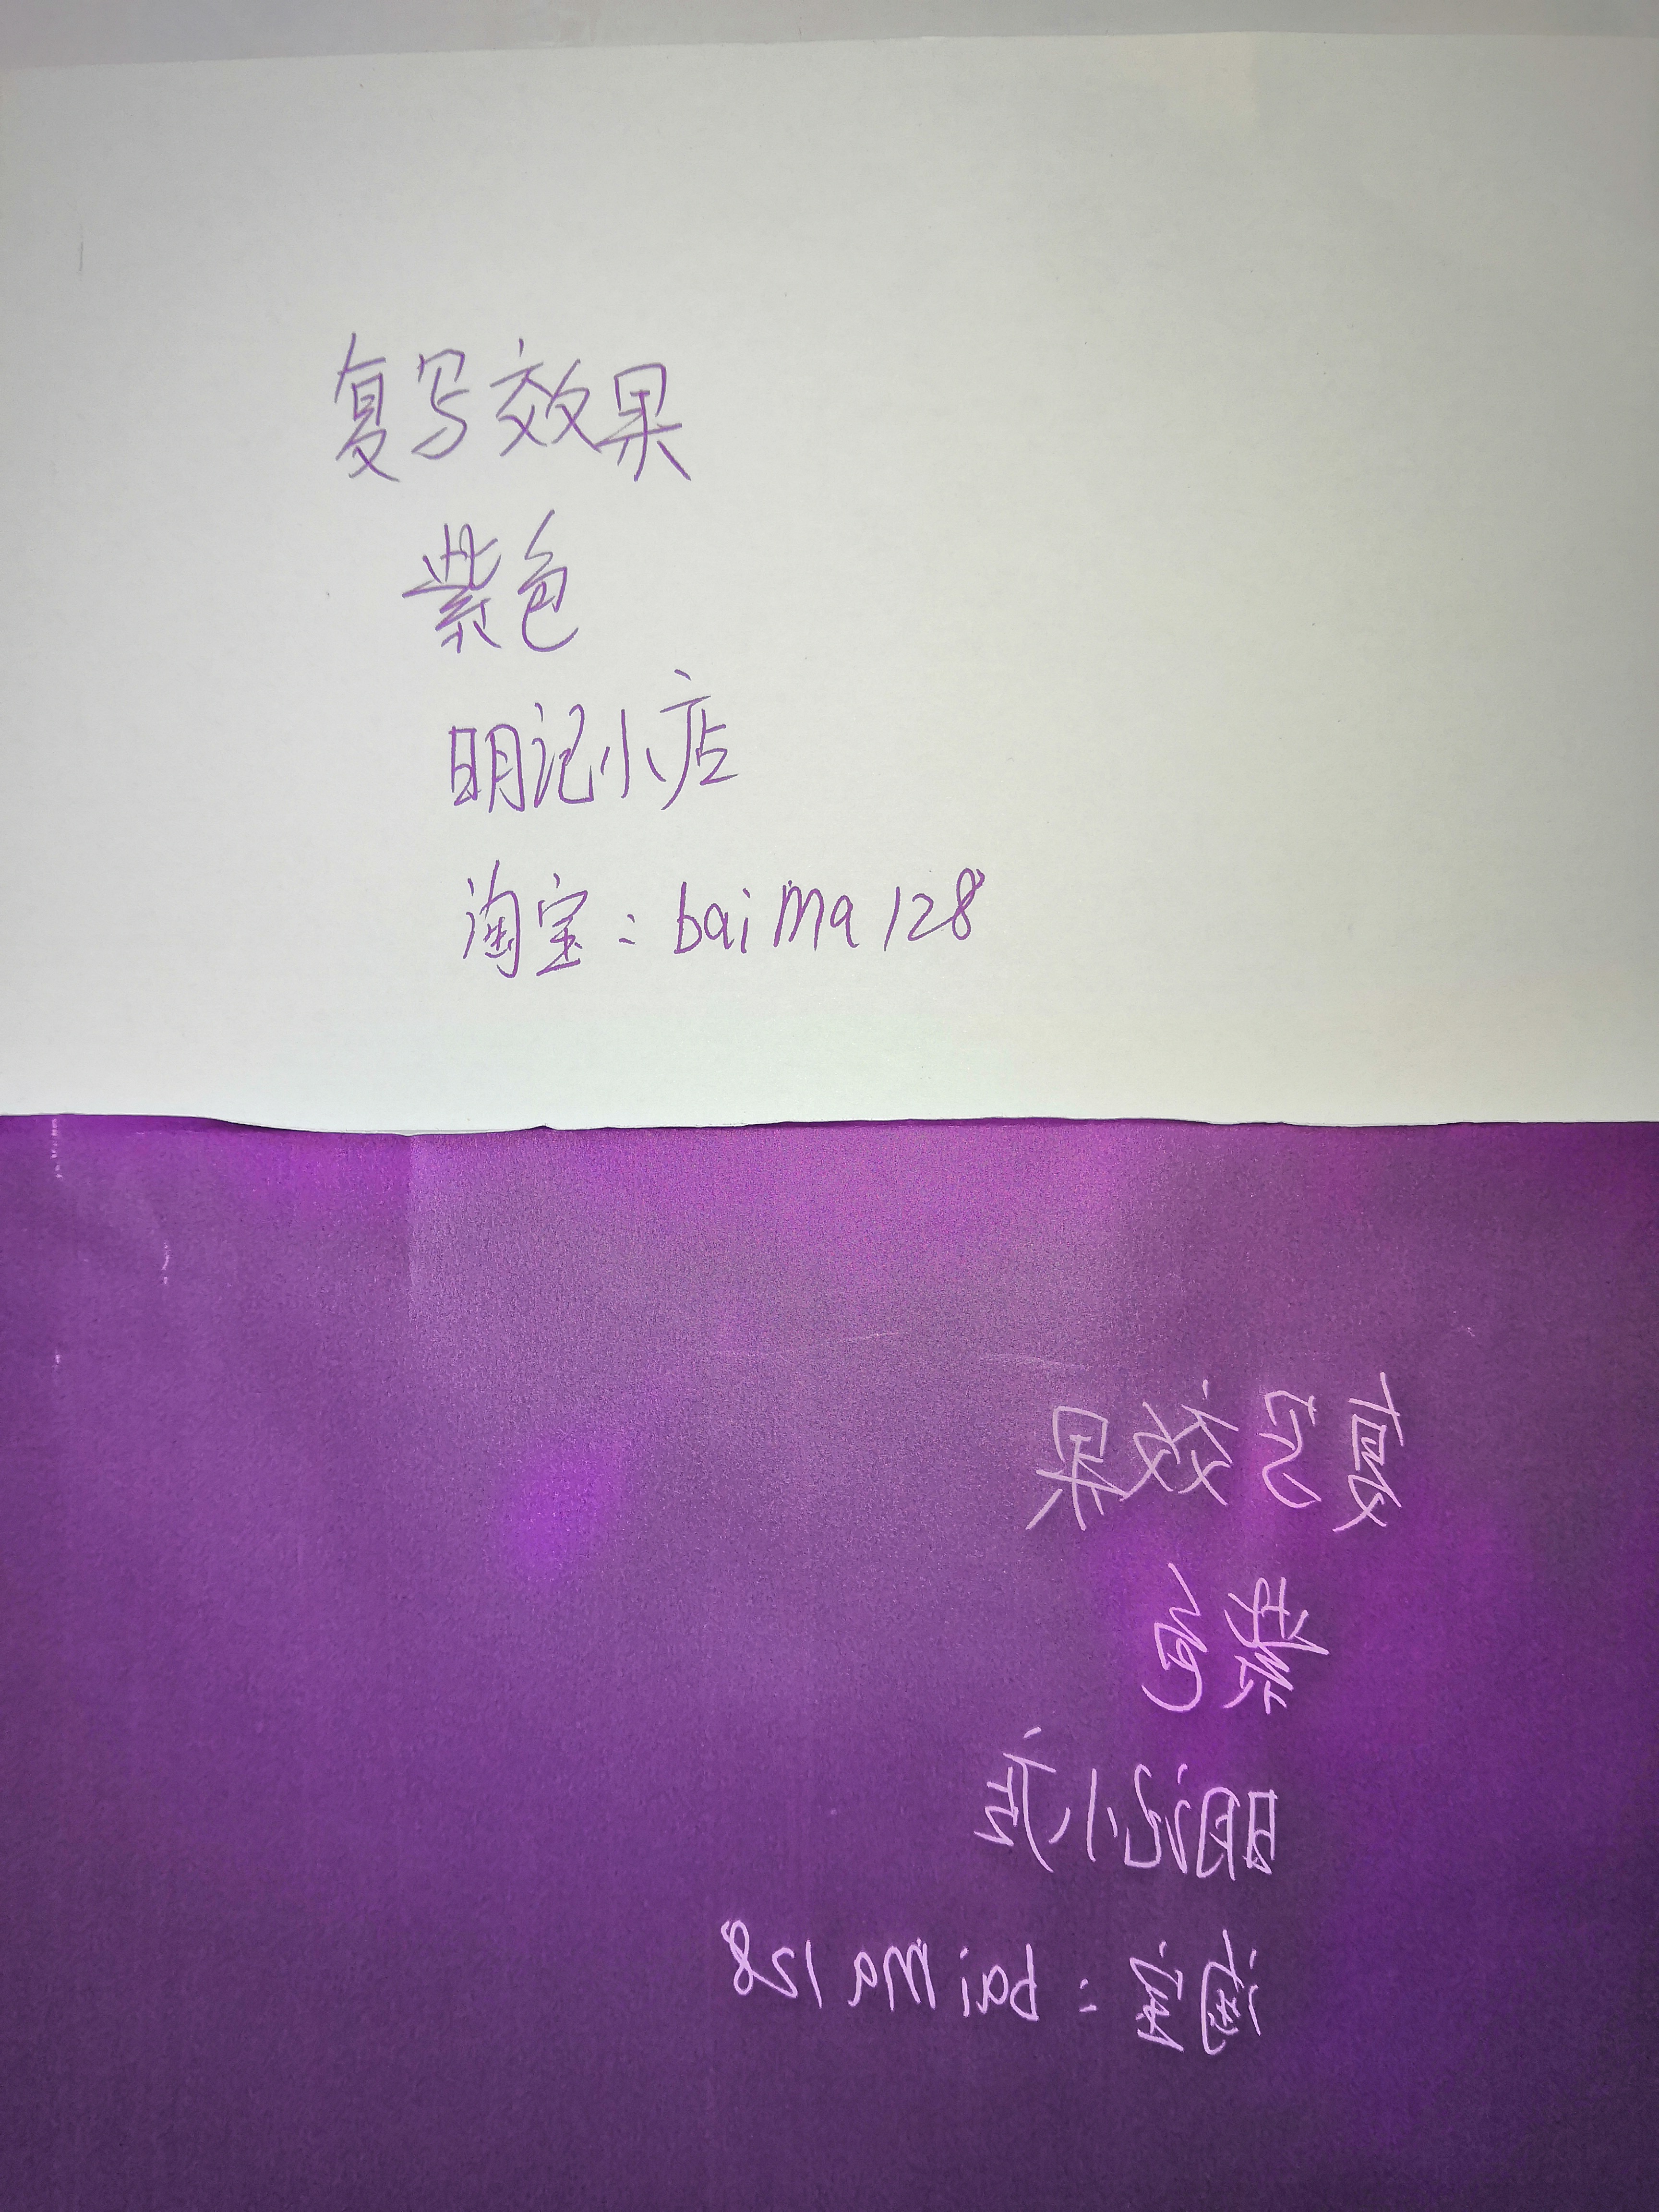 复写效果
紫色
明记小店
淘宝：baima128
复写效果
紫色
明记小店
淘宝：baima128